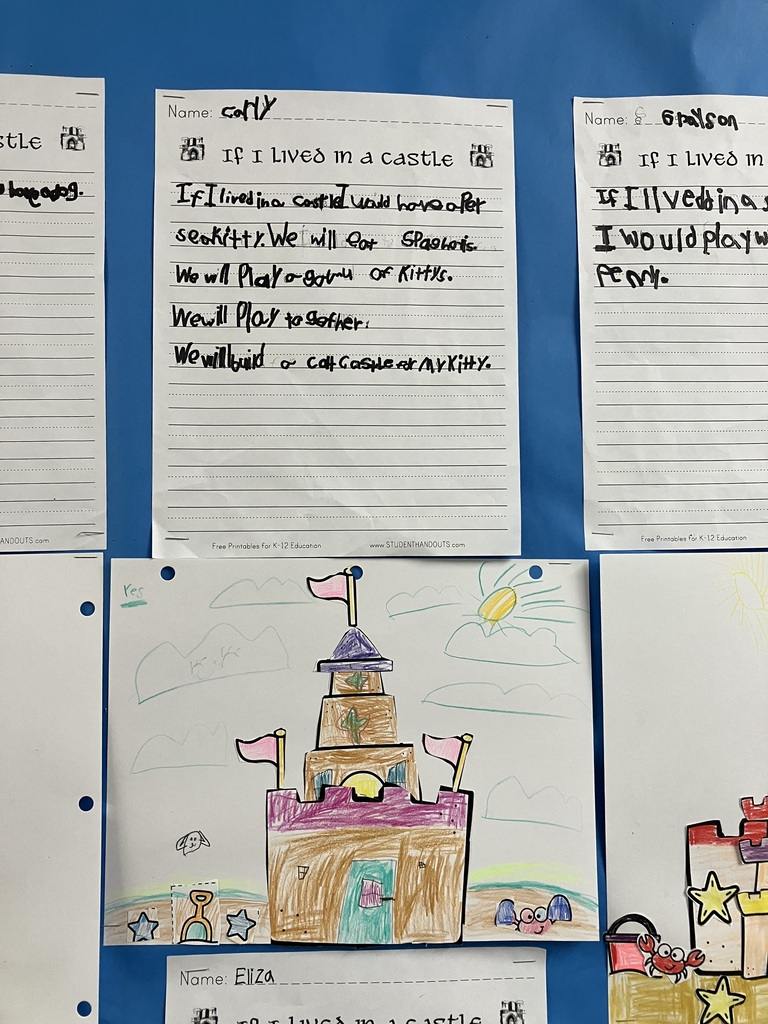 stle
have a dog.
Name: Carly
If I Lived in a Castle
If I lived in a castle I would have a Pet
seakitty. We will eat SPaghetis.
We will Play a game of Kittys.
We will Play together.
We will build a catt Castle at My Kitty.
Free Printables for K-12 Education www.STUDENTHANDOUTS.com
Name: Grayson
If I Lived in
If I livedd in a
I would play w
Penny.
Free Printables for K-12 Education
ANDOUTS.com
Yes
Name: Eliza
If I Lived in a Castle